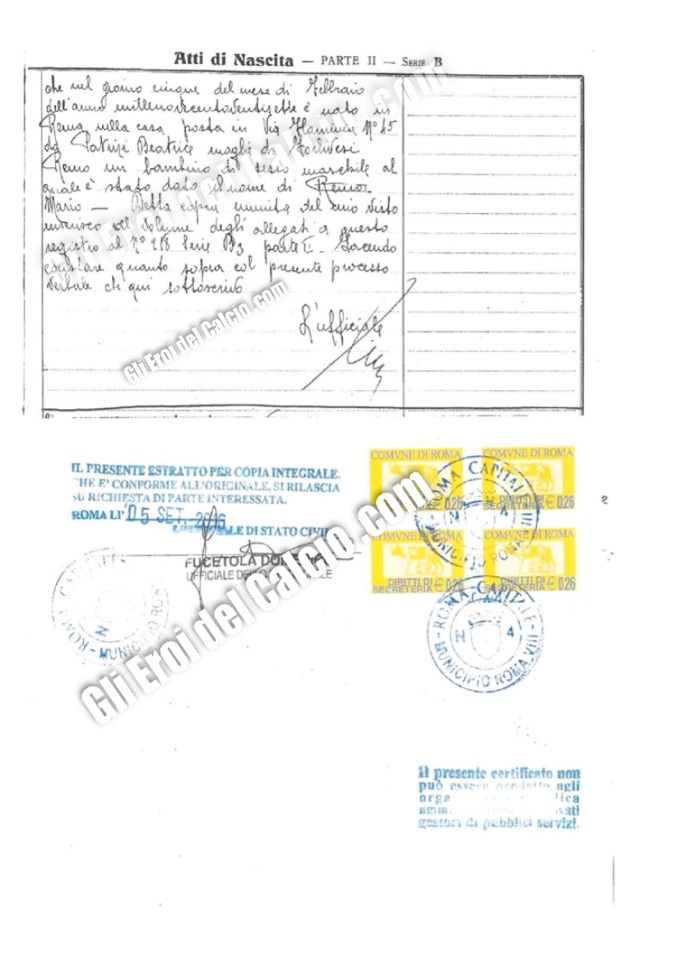 Atti di Nascita — PARTE II — SERIE B
che nel giorno cinque del mese di Febbraio
dell'anno millenovecentoventisette è nato in
Roma nella casa posta in Via Flaminia N° 45
da Patrizi Beatrice moglie di
Remo un bambino di sesso maschile al
quale è stato dato il nome di Remo
Mario — Detta copia munita del mio visto
inserisco nel volume degli allegati a questo
registro al N° 218 Serie parte II – Facendo
constare quanto sopra col presente processo
verbale che qui sottoscrivo
L'ufficiale
Gli Eroi del Calcio.com
IL PRESENTE ESTRATTO PER COPIA INTEGRALE,
CHE E' CONFORME ALL'ORIGINALE, SI RILASCIA
SU RICHIESTA DI PARTE INTERESSATA.
ROMA LI' 05 SET. 2016
DI STATO CIVILE
FUCETOLA
UFFICIALE
COMVNE DI ROMA COMVNE DI ROMA
DIRITTI DI SECRETERIA € 0,26
DIRITTI DI SECRETERIA € 0,26
DIRITTI DI SECRETERIA € 0,26
ROMA CAPITALE
MUNICIPIO ROMA VIII
N
ROMA CAPITALE
MUNICIPIO ROM
N
ROMA CAPITALE
N 4
MUNICIPIO ROMA VIII
Gli Eroi del Calcio.com
Il presente certificato non
può essere prodotto agli
gestori di pubblici servizi.